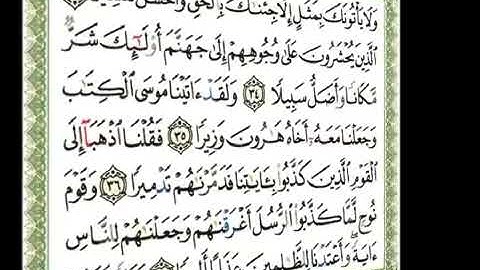 وَلَا يَأْتُونَكَ بِمَثَلٍ إِلَّا جِئْنَٰكَ بِٱلْحَقِّ وَأَحْسَنَ
ٱلَّذِينَ يُحْشَرُونَ عَلَىٰ وُجُوهِهِمْ إِلَىٰ جَهَنَّمَ أُو۟لَٰٓئِكَ شَرٌّ
مَّكَانًا وَأَضَلُّ سَبِيلًا ٣٤ وَلَقَدْ ءَاتَيْنَا مُوسَى ٱلْكِتَٰبَ
وَجَعَلْنَا مَعَهُۥٓ أَخَاهُ هَٰرُونَ وَزِيرًا ٣٥ فَقُلْنَا ٱذْهَبَآ إِلَى
ٱلْقَوْمِ ٱلَّذِينَ كَذَّبُوا۟ بِـَٔايَٰتِنَا فَدَمَّرْنَٰهُمْ تَدْمِيرًا ٣٦ وَقَوْمَ
نُوحٍ لَّمَّا كَذَّبُوا۟ ٱلرُّسُلَ أَغْرَقْنَٰهُمْ وَجَعَلْنَٰهُمْ لِلنَّاسِ
ءَايَةً وَأَعْتَدْنَا لِلظَّٰلِمِينَ عَذَابًا